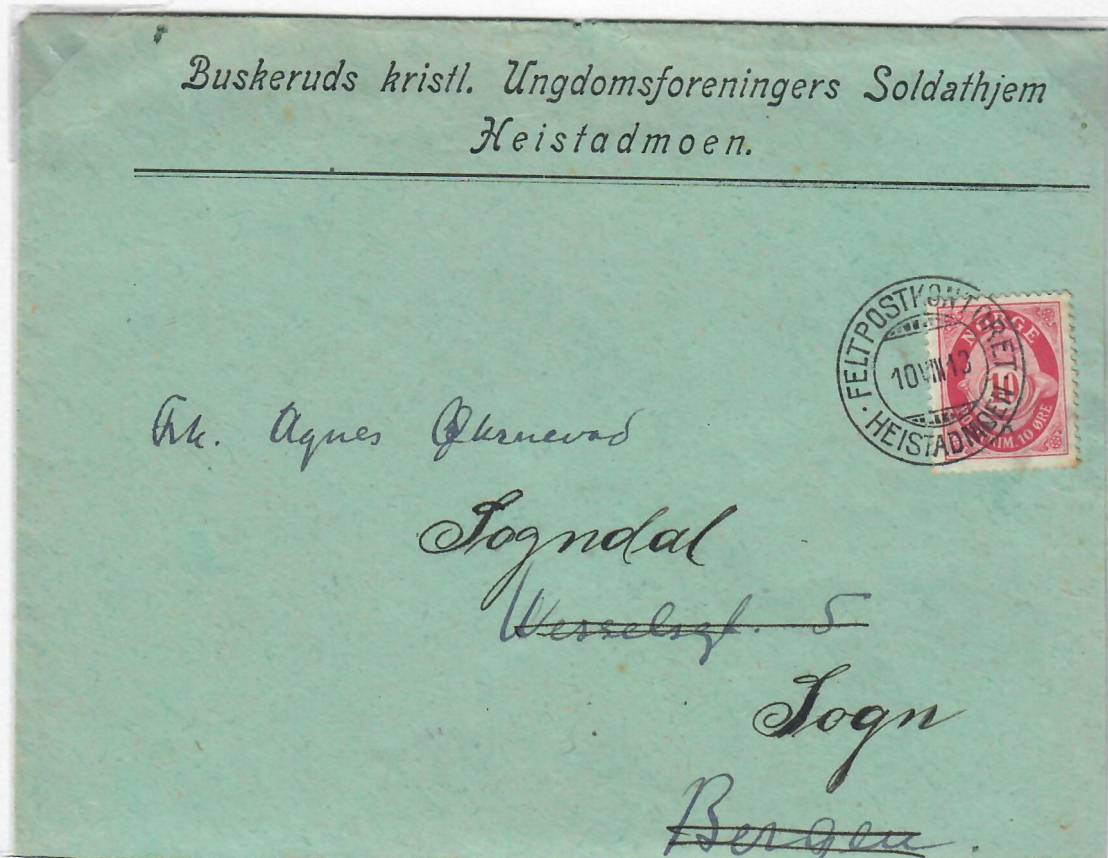 Buskeruds kristl. Ungdomsforeningers Soldathjem
Heistadmoen.
FELTPOSTKONTORET
10 VIII 13
HEISTADMOEN
NORGE
10
FRIM. 10 ØRE
Frk. Agnes
Sogndal
Wesselsgt. 5
Sogn
Bergen.